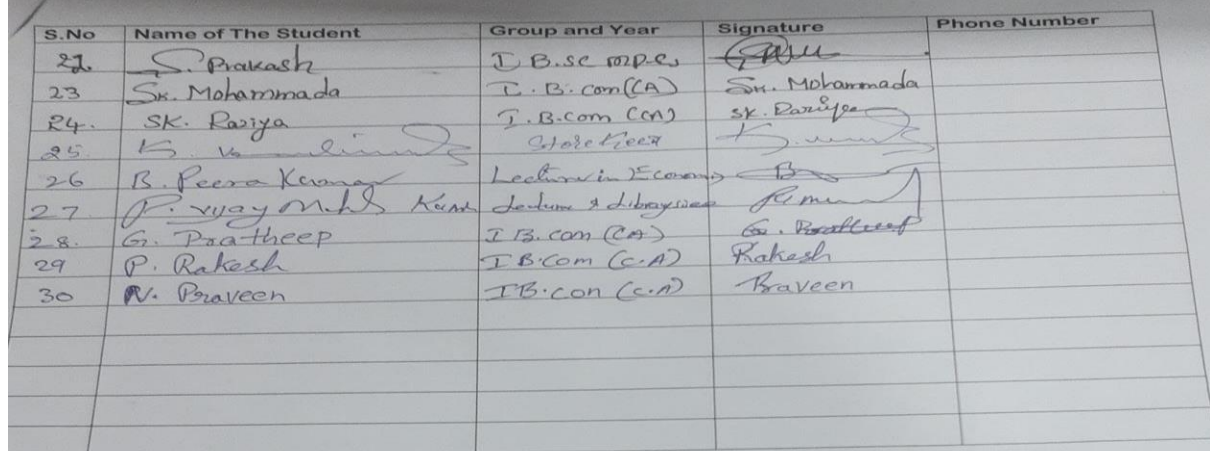 S.No Name of The Student Group and Year Signature Phone Number
S. Prakash I B.sc m.p.c,
23 Sk. Mohammada I. B. com (CA) Sk. Mohammada
24. SK. Raziya I. B.com (CA) SK. Raziya
25. K. Store Keeper K.
26 B. Peera Kumar Lecturer in Economics B
27 P. Vijay Kumar Lecturer &
28. G. Pratheep I B.com (CA) G. Pratheep
29 P. Rakesh I B.Com (C.A) Rakesh
30 N. Praveen I B.con (C.A) Praveen